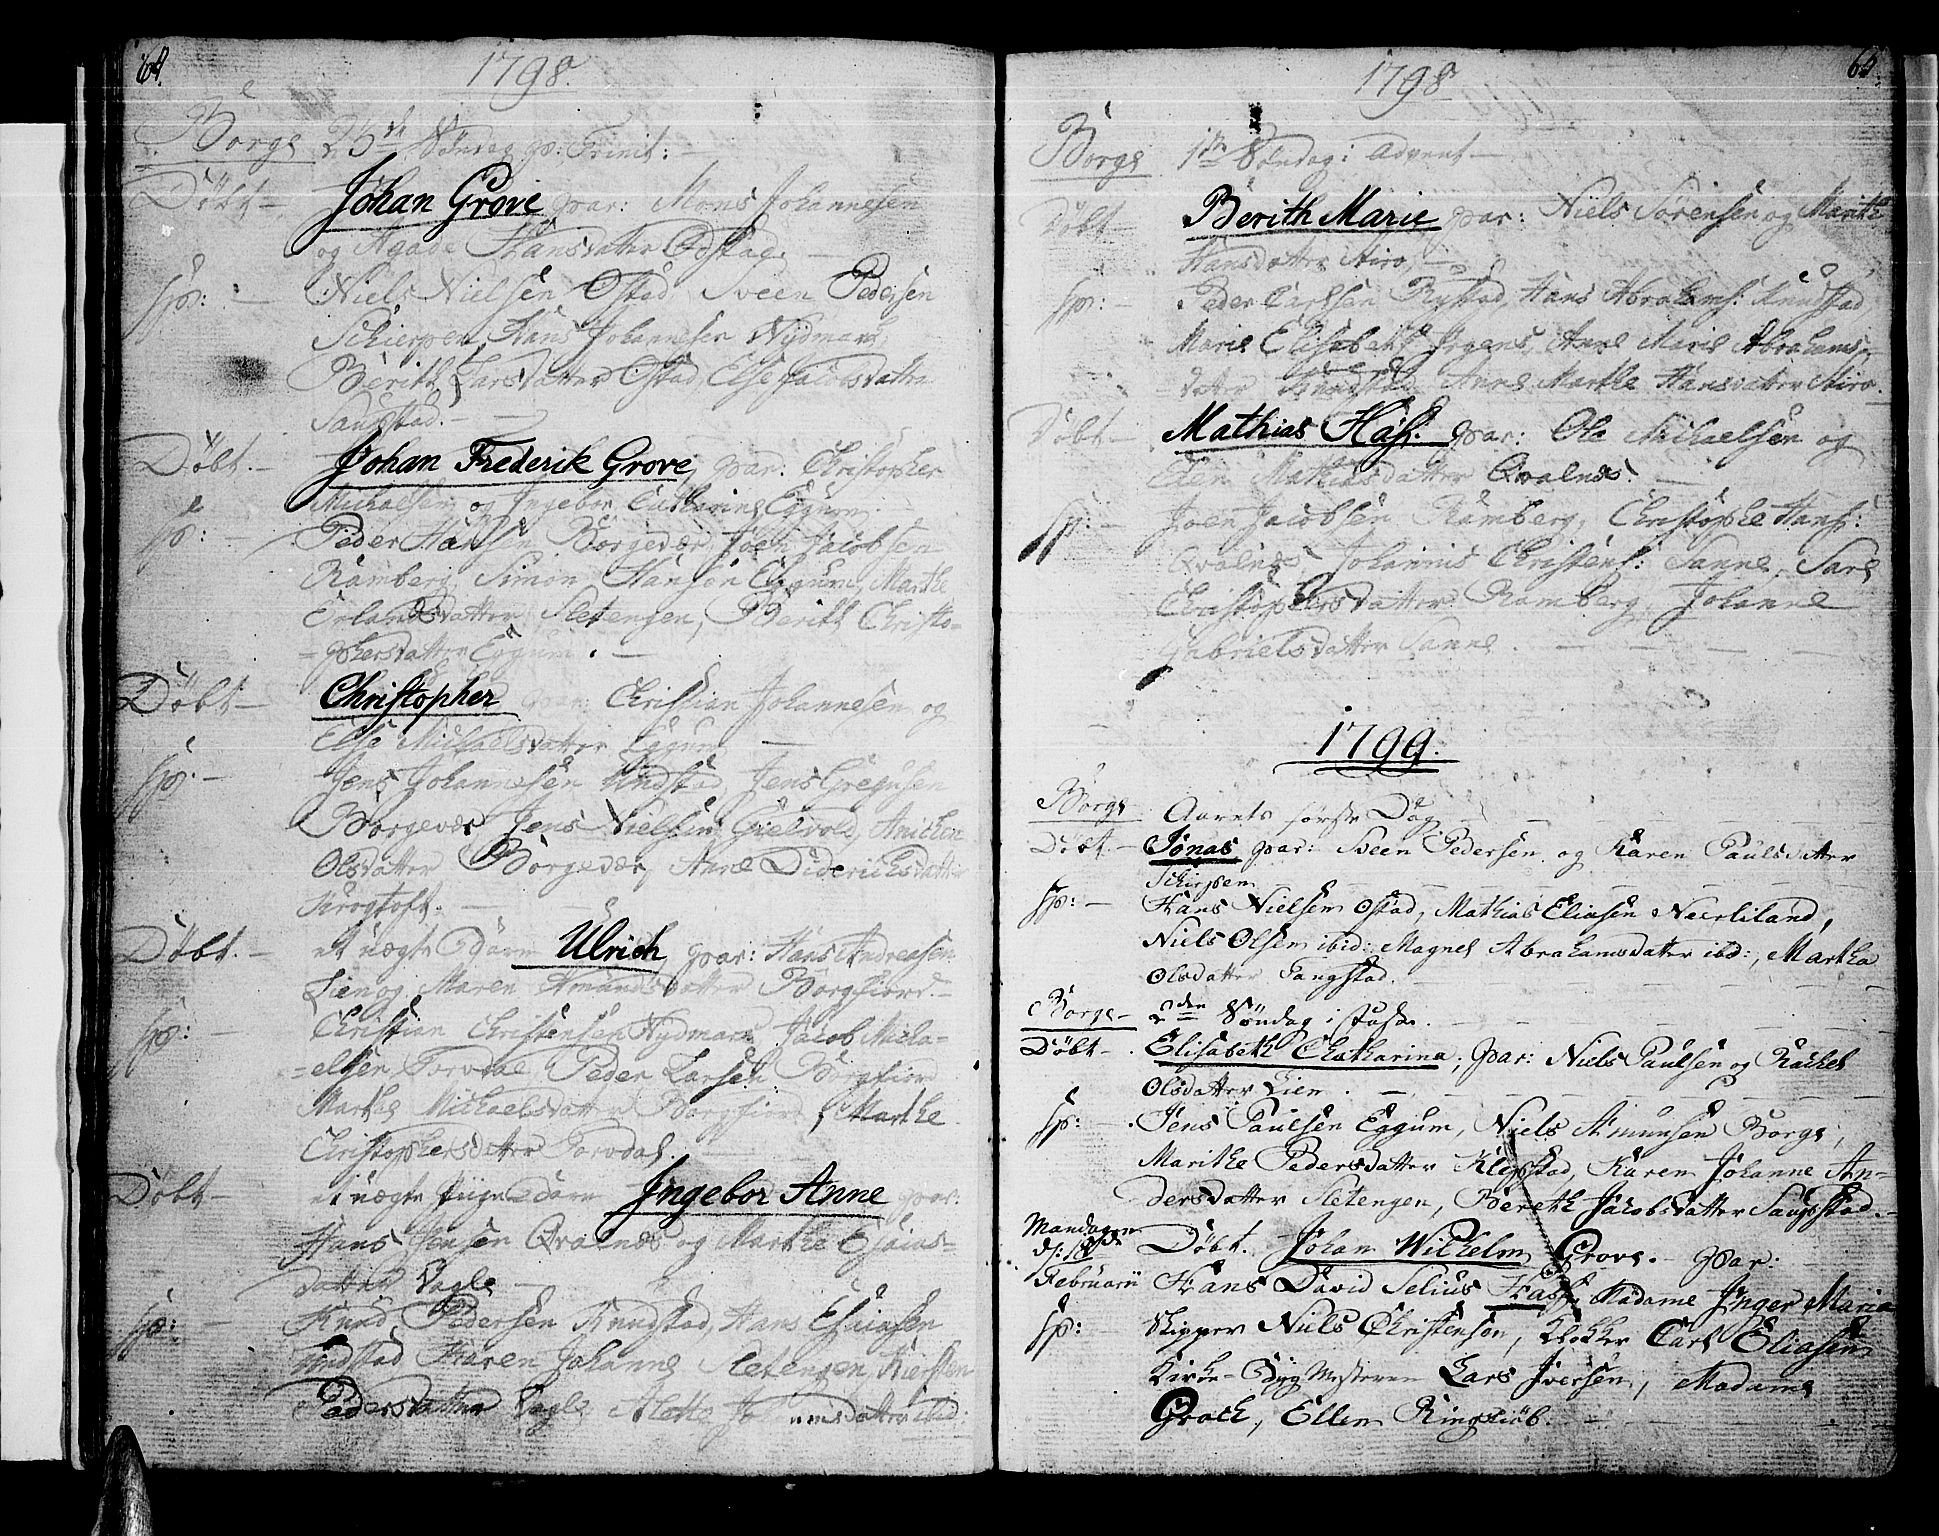 64.
1798.
Borge 25de Søndag p: Trinit: —
Døbt — Johan Grove par: Mons Johannesen
og Agade Hansdatter Ostad. —
sp: — Niels Nielsen Ostad, Sveen Pedersen
Schierpen, Hans Johannesen Nydmark,
Berith Larsdatter Ostad, Else Jacobsdatter
Saugstad. —
Døbt. — Johan Frederik Grove, par: Christopher
Michaelsen og Ingebor Catharina Eggum. —
sp: — Peder Hansen Borgevær, Joen Jacobsen
Ramberg, Simon Hanson Eggum, Marthe
Erlandsdatter Sletengen, Berith Christo-
-phersdatter Eggum. —
Døbt — Christopher par: Christian Johannesen og
Else Michaelsdatter Eggum —
sp. — Jens Johannesen Undstad, Jens Gregusen
Borgevær, Jens Nielsen Gielvold, Anichen
Olsdatter Borgevær, Anne Didericksdatter
Krogtoft. —
Døbt. — et uægte Barn Ulrich par: Hans Andreasen
Lien og Maren Amundsdatter Borgfiord. —
sp: — Christian Christensen Nydmark, Jacob Micha-
-elsen Torvdal, Peder Larsen Borgfiord
Marthe Michaelsdatter Borgfiord, Marthe
Christophersdatter Torvdal. —
Døbt — et uægte Pige Barn Ingebor Anne par:
Hans Jensen Qvalnes og Marthe Esaias-
datter Vagle —
sp: — Knud Pedersen Knudstad, Hans Esaiasen
Undstad Karen Johanne Sletengen, Kiersten
Pedersdatter Vagle, Alette ibid:
64.
1798
Borge 1ste Søndag i Advent —
Døbt — Berith Marie par: Niels Sørensen og Marithe
Hansdatter Stiro, —
sp: — Peder Carlsen Rystad, Hans Abrahams: Knudstad,
Marie Elisabeth Irgens, Anne Marie Abrahams-
datter Knudstad, Anne Marthe Hansdatter Stiro.
Døbt — Mathias Hass. par: Ole Michaelsen og
Elen Mathiasdatter Qvalnes. —
sp: — Joen Jacobsen Ramberg, Christophe Hans:
Qvalnes, Johannis Christens: Sanne, Sare
Christophersdatter Ramberg, Johanne
Gabrielsdatter Sanne. —
1799.
Borge Aarets første Dag —
Døbt. — Jonas, par: Sveen Pedersen og Karen Paulsdatter
Schierpen
sp: — Hans Nielsen Ostad, Mathias Eliasen Neerliland,
Niels Olsen ibid: Magnel Abrahamsdatter ibid:, Martha
Olsdatter Sangstad. —
Borge — 2den Søndag i Faste. —
Døbt — Elisabeth Chatharina, par: Niels Paulsen og Rachel
Olsdatter Lien. —
sp: — Jens Paulsen Eggum, Niels Amunsen Borge,
Marithe Pedersdatter Klepstad, Karen Johanne An-
dersdatter Sletengen, Bereth Jacobsdatter Saugstad. —
Mandagen Døbt. Johan Wilhelm Grove. par:
Februarii Hans David Selius Hass, Madame Inger Maria
sp: — Skipper Niels Christenson, Klokker Carl Eliasen
Kirke-Bygmesteren Lars Iversen, Madame
Groth, Ellen Ringsiøb. —